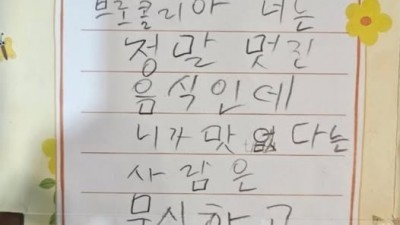 브로콜리야 너는
정말 멋진
음식인데
니가 맛없다는
사람은
무시하고